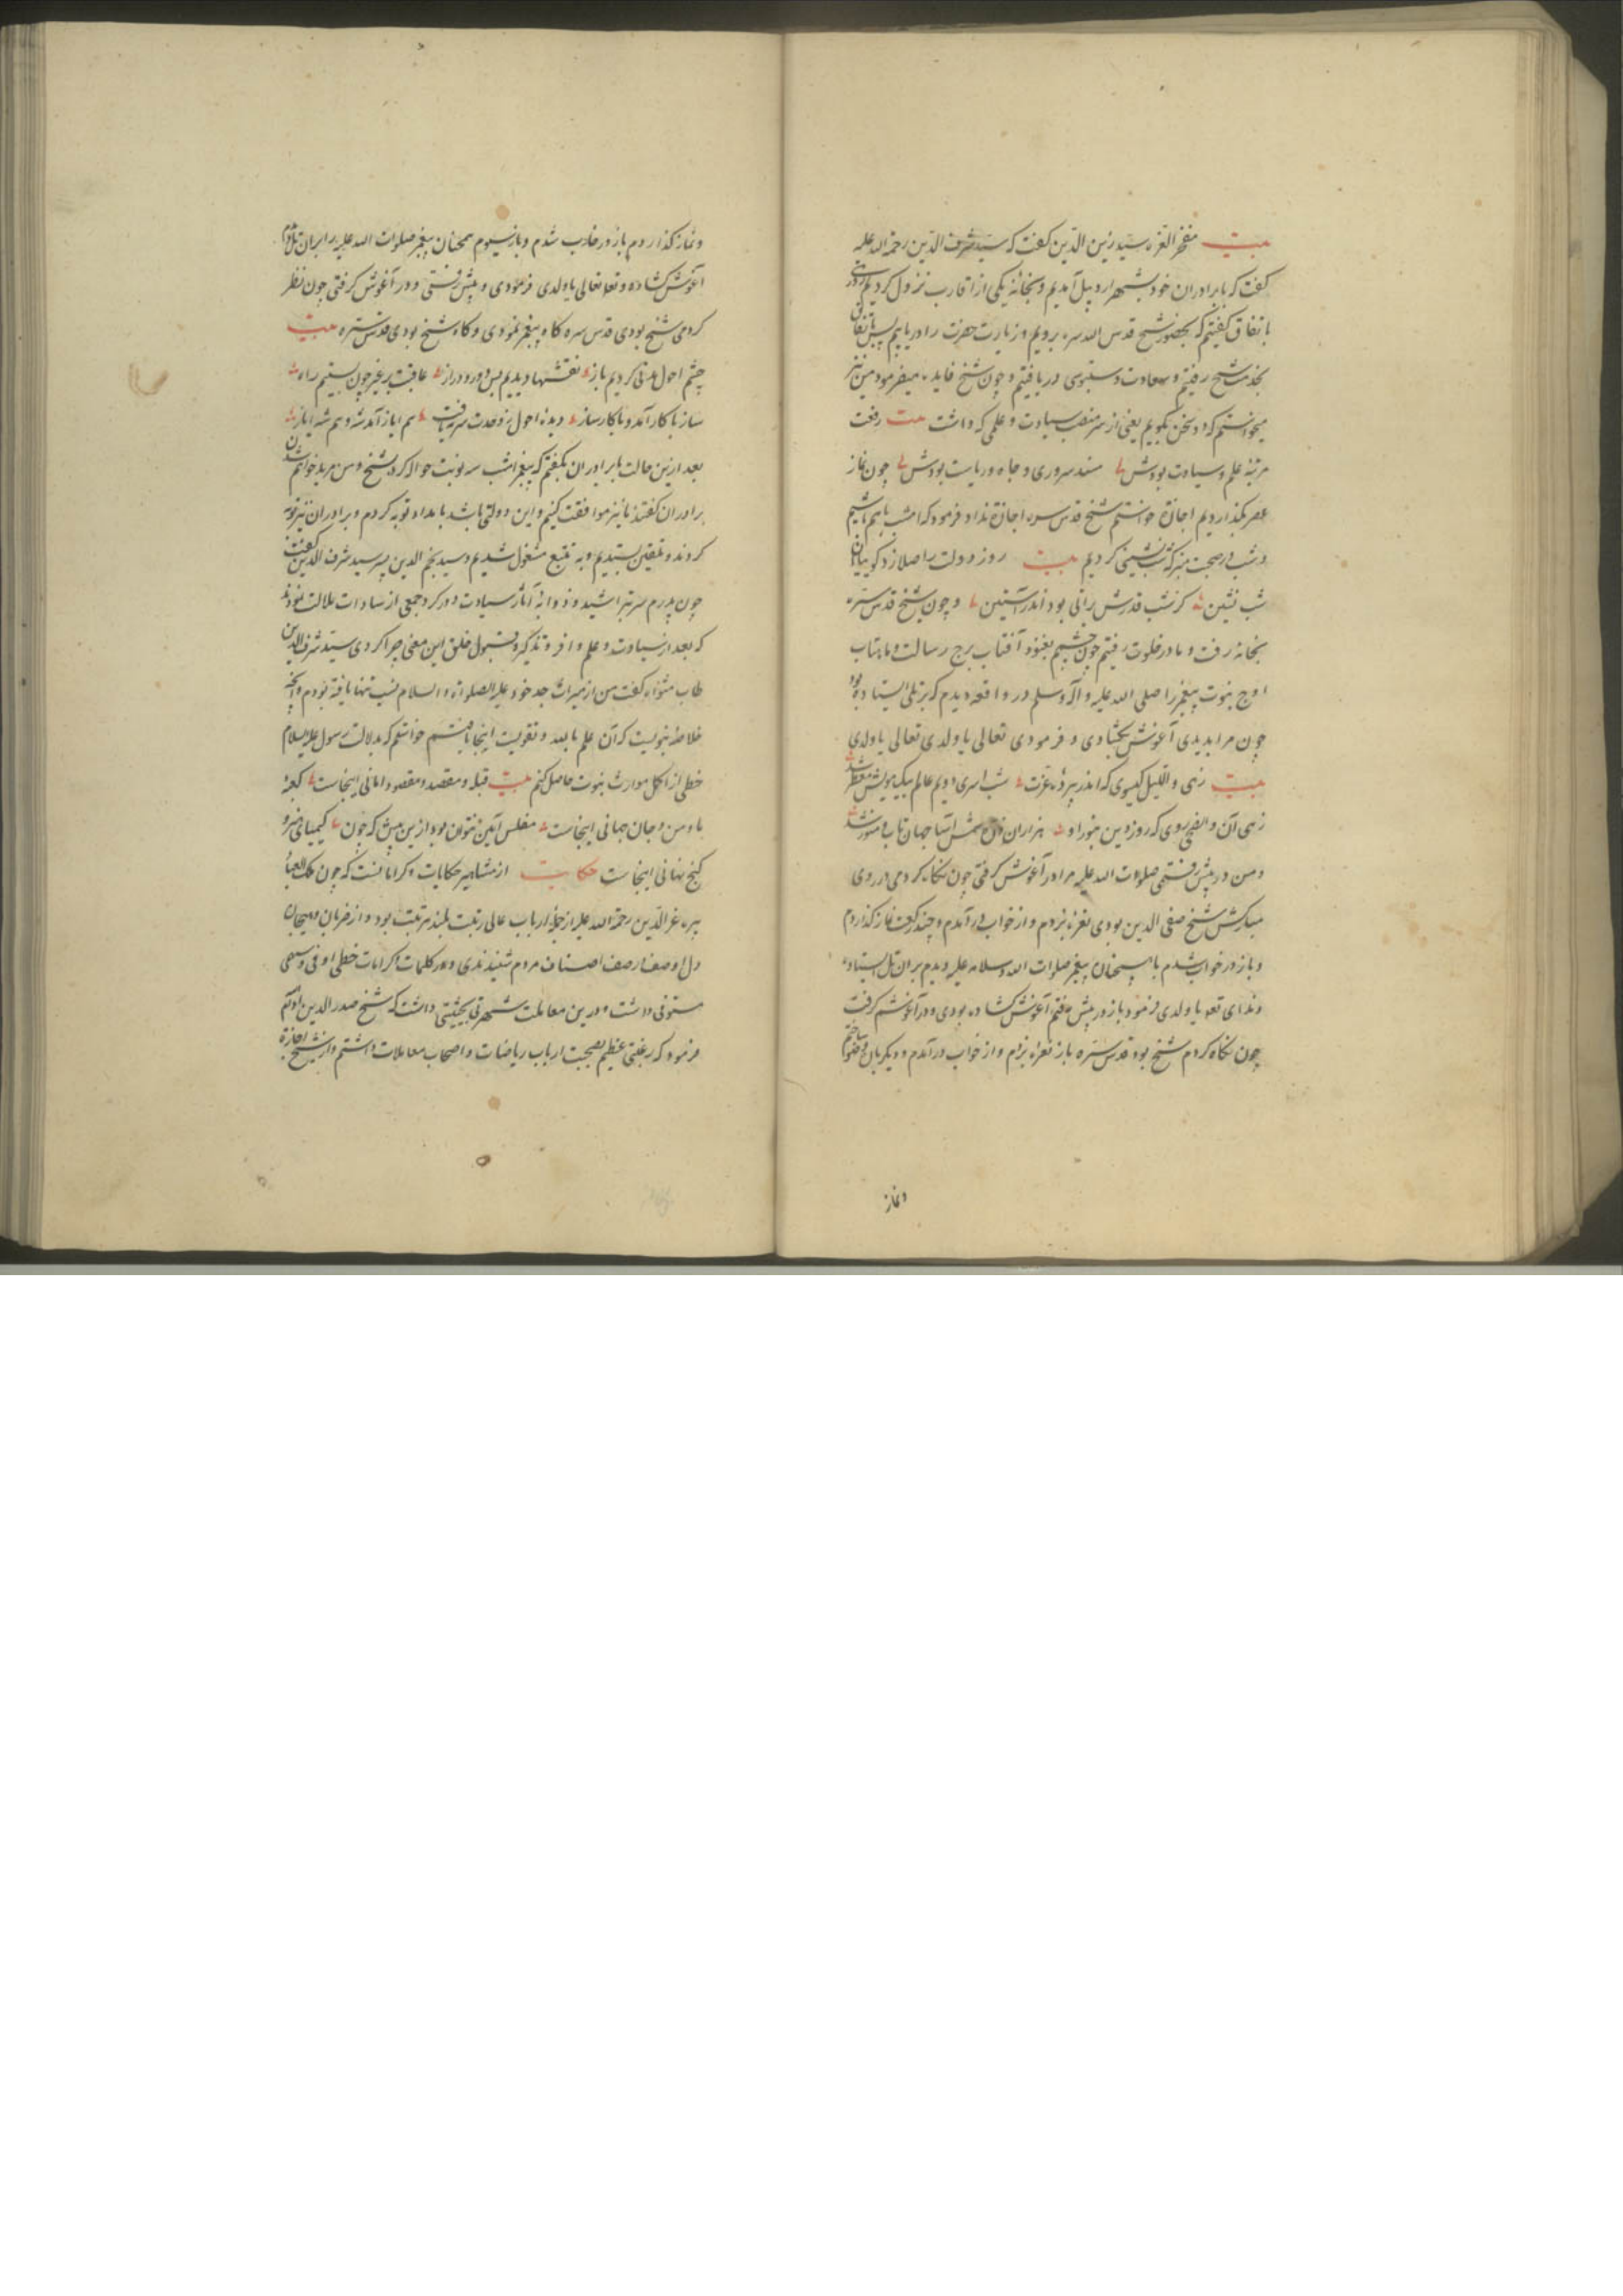 بیت مفخر العزه سید زین الدین کفت که سید شرف الدین رحمة الله علیه
کفت که با برادران خود بشهر اردبیل آمدیم و بخانه یکی از اقارب نزول کردیم
باتفاق کفتیم که بحضور شیخ قدس الله سره برویم و زیارت حضرت را دریابیم پس باتفاق
بخدمت شیخ رفتیم و سعادت دستبوسی دریافتیم و چون شیخ فایده میفرمود من نیز
میخواستم که دو سخن بکویم یعنی از سر منصب سیادت و علمی که داشت بیت رفعت
مرتبه علم و سیادت بودش مسند سروری و جاه و ریاست بودش چون نماز
عصر بگذاردیم اجازة خواستم شیخ قدس سره اجازة نداد فرمود که امشب باهم باشیم
و شب در صحبت متبرکه شب نشینی کردیم بیت روز دولت را صلا زد کو بیا
شب نشین کز شب قدرش براتی بود اندر آستین و چون شیخ قدس سره
بخانه رفت و ما در خلوت رفتیم چون چشم بغنود آفتاب برج رسالت و ماهتاب
اوج نبوت پیغمبر را صلی الله علیه و آله و سلم در واقعه دیدم که بر تلی ایستاده بود
چون مرا بدیدی آغوش بکشادی و فرمودی تعالی یا ولدی تعالی یا ولدی
بیت زهی واللیل کیسوی که اندر پرده عزت شب اسری دویم عالم بیک مویش معطر شد
زهی آن والضحی روی که روز دین بنور او هزاران شمس آسا جهان تاب و منور شد
و من در پیش رفتمی صلوات الله علیه مرا در آغوش کرفتی چون نکاه کردمی در روی
مبارکش شیخ صفی الدین بودی نعره بزدم و از خواب در آمدم و چند رکعت نماز کذاردم
و باز در خواب شدم باز همچنان پیغمبر صلوات الله و سلامه علیه دیدم بر آن تل ایستاده
و ندای تعالی یا ولدی فرمود باز در پیش رفتم آغوش کشاده بودی و در آغوشم کرفت
چون نکاه کردم شیخ بود قدس سره باز نعره بزدم و از خواب در آمدم و دیکر بار وضو ساختم
و نماز
و نماز کذاردم باز در خواب شدم و باز سیوم همچنان پیغمبر صلوات الله علیه را بر آن تل دیدم
آغوش کشاده و تعالی تعالی یا ولدی فرمودی و پیش رفتمی و در آغوش کرفتی چون نظر
کردمی شیخ بودی قدس سره کاه پیغمبر نمودی و کاه شیخ بودی قدس سره بیت
چشم احول مدتی کردیم باز نقشها دیدیم بس دور و دراز عاقبت بر غیر چون بستیم راه
ساز با کار آمد و با کارساز دیده احول ز وحدت سر نیافت هم ایاز آمد شه و هم شه ایاز
بعد ازین حالت با برادران بکفتم که پیغمبر امشب سه نوبت حواله کرد بشیخ و من مرید خواهم شدن
برادران کفتند ما نیز موافقت کنیم و این دولتی باشد بامداد توبه کردم و برادران نیز توبه
کردند و تلقین بستدیم و به تتبع مشغول شدیم و سید نجم الدین پسر سید شرف الدین کفت
چون پدرم سر بتراشید و ذوابه آثار سیادت دور کرد جمعی از سادات ملالت نمودند
که بعد از سیادت و علم وافر و تذکیر و قبول خلق این معنی چرا کردی سید شرف الدین
طاب مثواه کفت من از میراث جد خود علیه الصلوة و السلام نسب تنها یافته بودم و آنچه
خلاصه نبویست که آن علم بالله و تقویست اینجا یافتم خواستم که بدلالت رسول علیه السلام
حظی از اکمل مواریث نبوت حاصل کنم بیت قبله و مقصد و مقصود امانی اینجاست کعبه
ما و من و جان جهانی اینجاست مفلس آیین نتوان بود ازین پیش که چون کیمیای نهر و
کنج نهانی اینجاست حکایت از مشاهیر حکایات و کراماتست که چون ملک العباد
پیره عز الدین رحمة الله علیه از جمله ارباب عالی رتبت بلند مرتبت بود و از ضربان و هیجان
دل او صف از صف اصناف مردم شنیدندی و در کلمات و کرامات حظی اوفی و سهمی
مستوفی داشت و درین معاملت شهرتی بحیثیتی داشت که شیخ صدر الدین ادام
فرمود که رغبتی عظیم بصحبت ارباب ریاضات و اصحاب معاملات داشتم و از شیخ اجازة